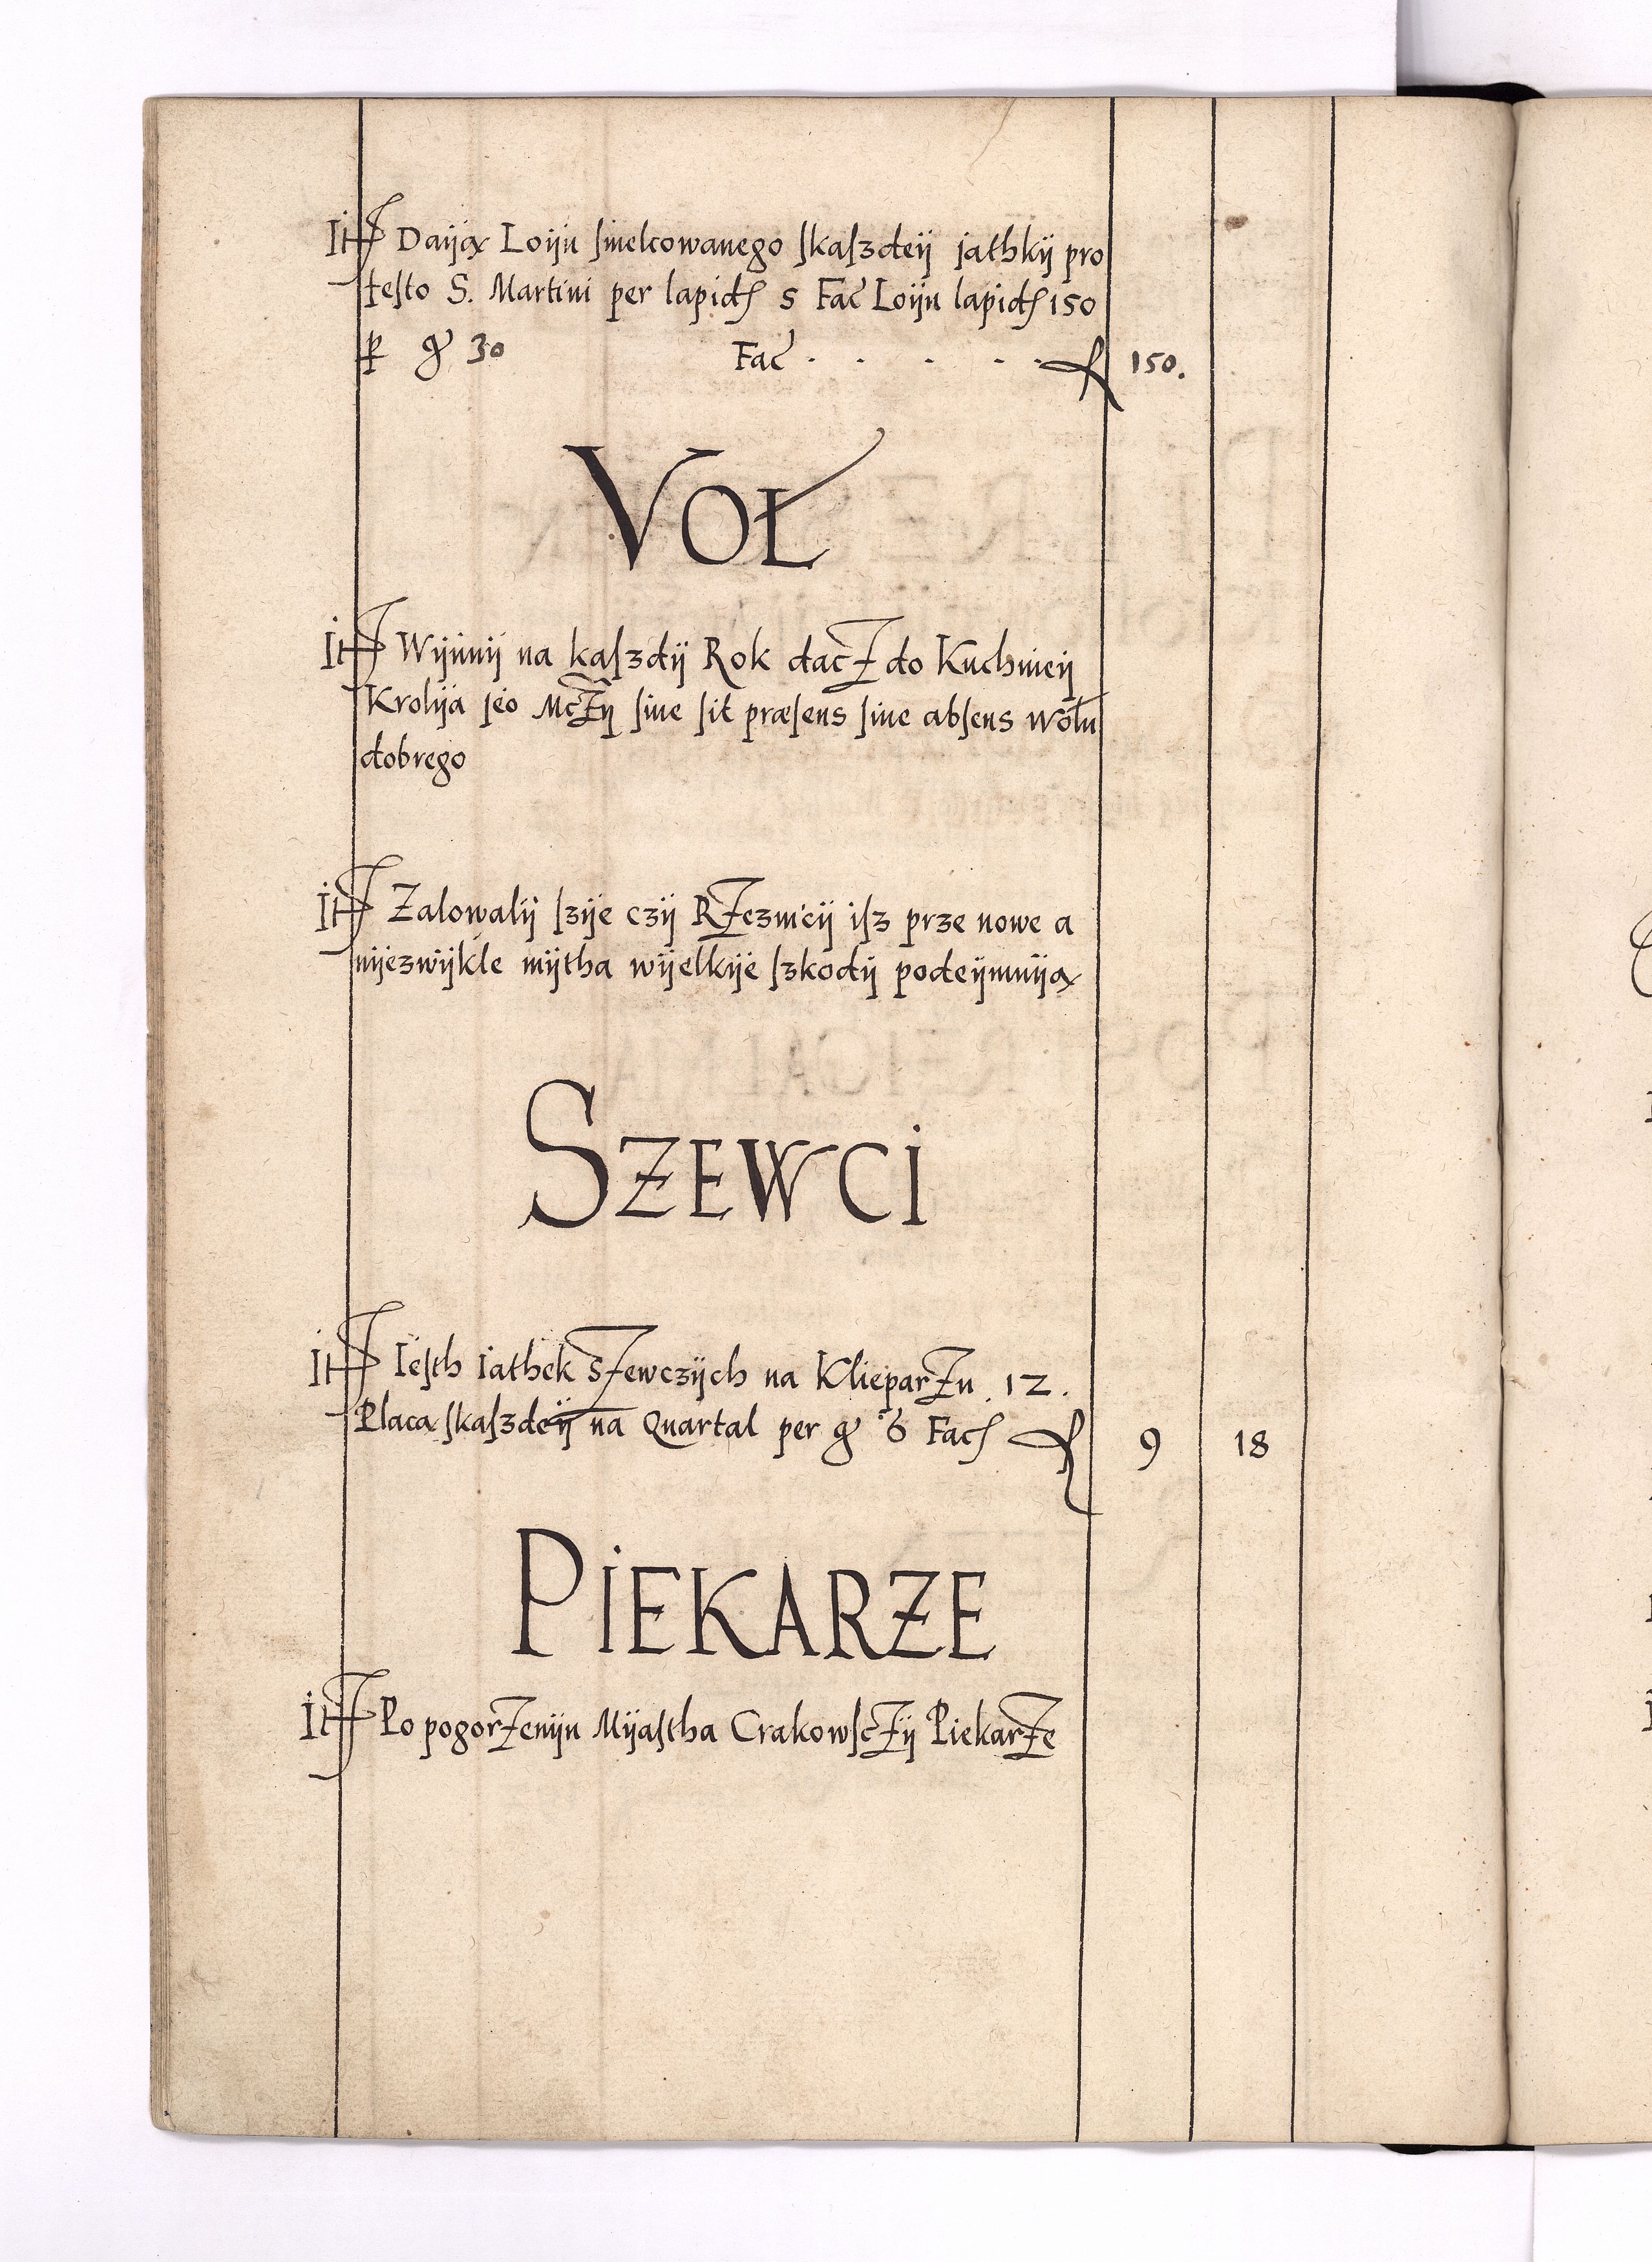 It Daÿą Loÿu smelcowanego skaſzdeÿ jathkÿ pro
festo S. Martini per lapid 5 Fac Loÿu lapid 150
p gr 30 Fac . . . . . fl 150.
VOŁ
It Wÿnnÿ na kaſzdÿ Rok dacż do Kuchnieÿ
Krolÿa jeo Mczÿ siue sit præsens siue absens wołu
dobrego
It Zalowalÿ szÿe czÿ Rzeznicÿ isz prze nowe a
nÿezwÿkle mÿtha wÿelkÿe szkodÿ podeÿmuÿą
SZEWCI
It Iesth Iathek Szewczÿch na Klieparzu 12.
Placą skaſzdeÿ na Quartal per gr 6 Fac fl 9 18
PIEKARZE
It Po pogorzenÿu Mÿastha Crakowsczÿ Piekarze